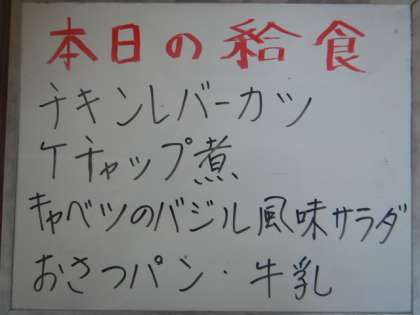 本日の給食
チキンレバーカツ
ケチャップ煮
キャベツのバジル風味サラダ
おさつパン・牛乳